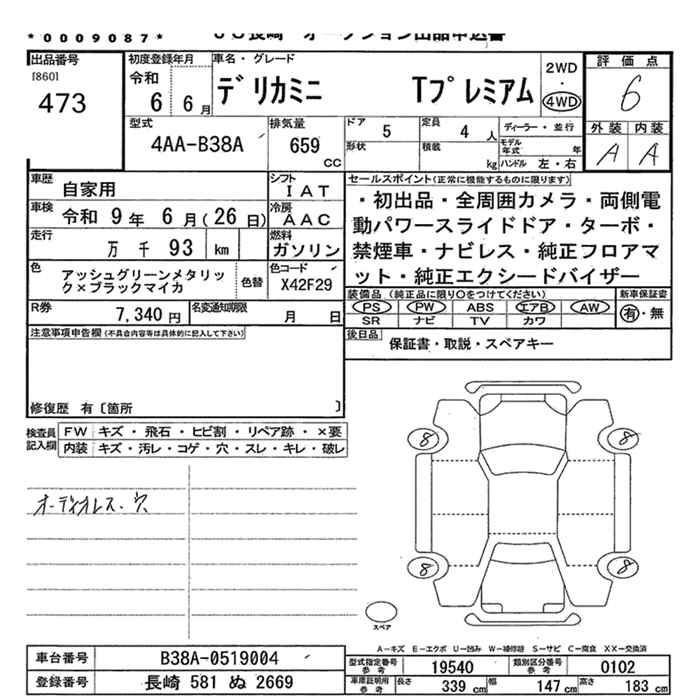 *0009087* JU長崎 オークション出品申込書
出品番号
[860]
473
初度登録年月
令和 6 6月
車名・グレード
デリカミニ Tプレミアム
2WD
・
4WD
評価点
6
型式
4AA-B38A
排気量
659 cc
ドア 5
定員 4 人
形状
積載 kg
ディーラー・並行
モデル年式 年
ハンドル 左・右
外装 内装
A A
車歴 自家用
シフト IAT
車検 令和 9年 6月(26日)
冷房 AAC
走行 万 千 93 km
燃料 ガソリン
色 アッシュグリーンメタリック×ブラックマイカ
色替
色コード X42F29
R券 7,340円
名変通知期限 月 日
セールスポイント(正常に機能するものに限ります)
・初出品・全周囲カメラ・両側電
動パワースライドドア・ターボ・
禁煙車・ナビレス・純正フロアマ
ット・純正エクシードバイザー
装備品(純正品に限り○をつけてください)
PS PW ABS エアB AW
SR ナビ TV カワ
新車保証書
有・無
後日品 保証書・取説・スペアキー
注意事項申告欄(不具合内容等は具体的に記入して下さい)
修復歴 有〔箇所 〕
検査員記入欄
FW キズ・飛石・ヒビ割・リペア跡・×要
内装 キズ・汚レ・コゲ・穴・スレ・キレ・破レ
オーディオレス.穴
8 8
8 8
スペア
A-キズ E-エクボ U-凹み W-補修跡 S-サビ C-腐食 XX-交換済
車台番号 B38A-0519004
登録番号 長崎 581 ぬ 2669
型式指定番号参考 19540
類別区分番号参考 0102
車庫証明用参考 長さ 339cm 幅 147cm 高さ 183cm